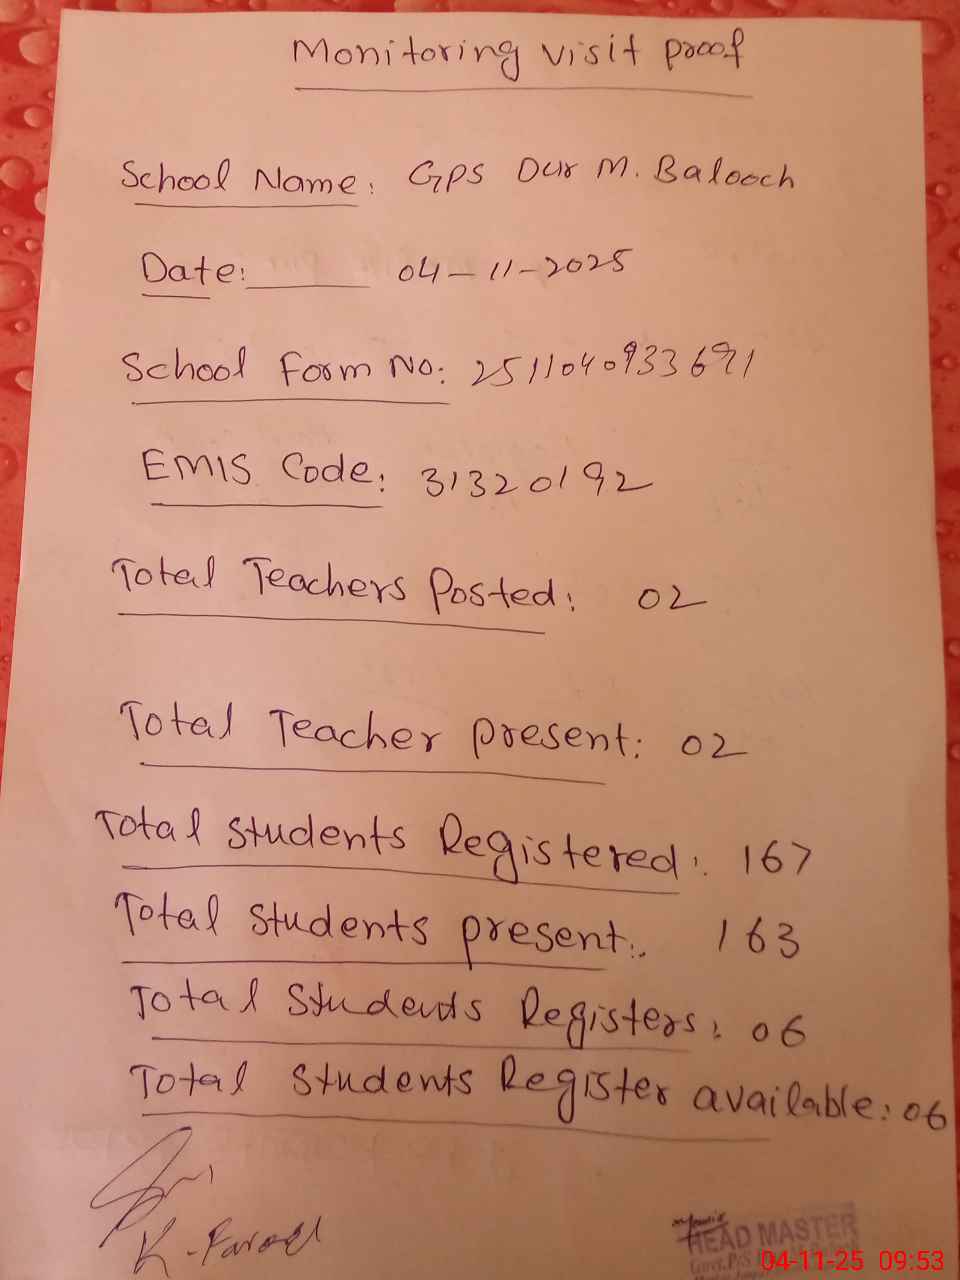 Monitoring visit proof
School Name: GPS Dur M. Balooch
Date: 04-11-2025
School Form No: 2511040933691
EMIS Code: 31320192
Total Teachers Posted: 02
Total Teacher present: 02
Total students Registered: 167
Total students present: 163
Total Students Registers: 06
Total Students Register available: 06
K-Farooq
HEAD MASTER
Govt. P/S
04-11-25 09:53